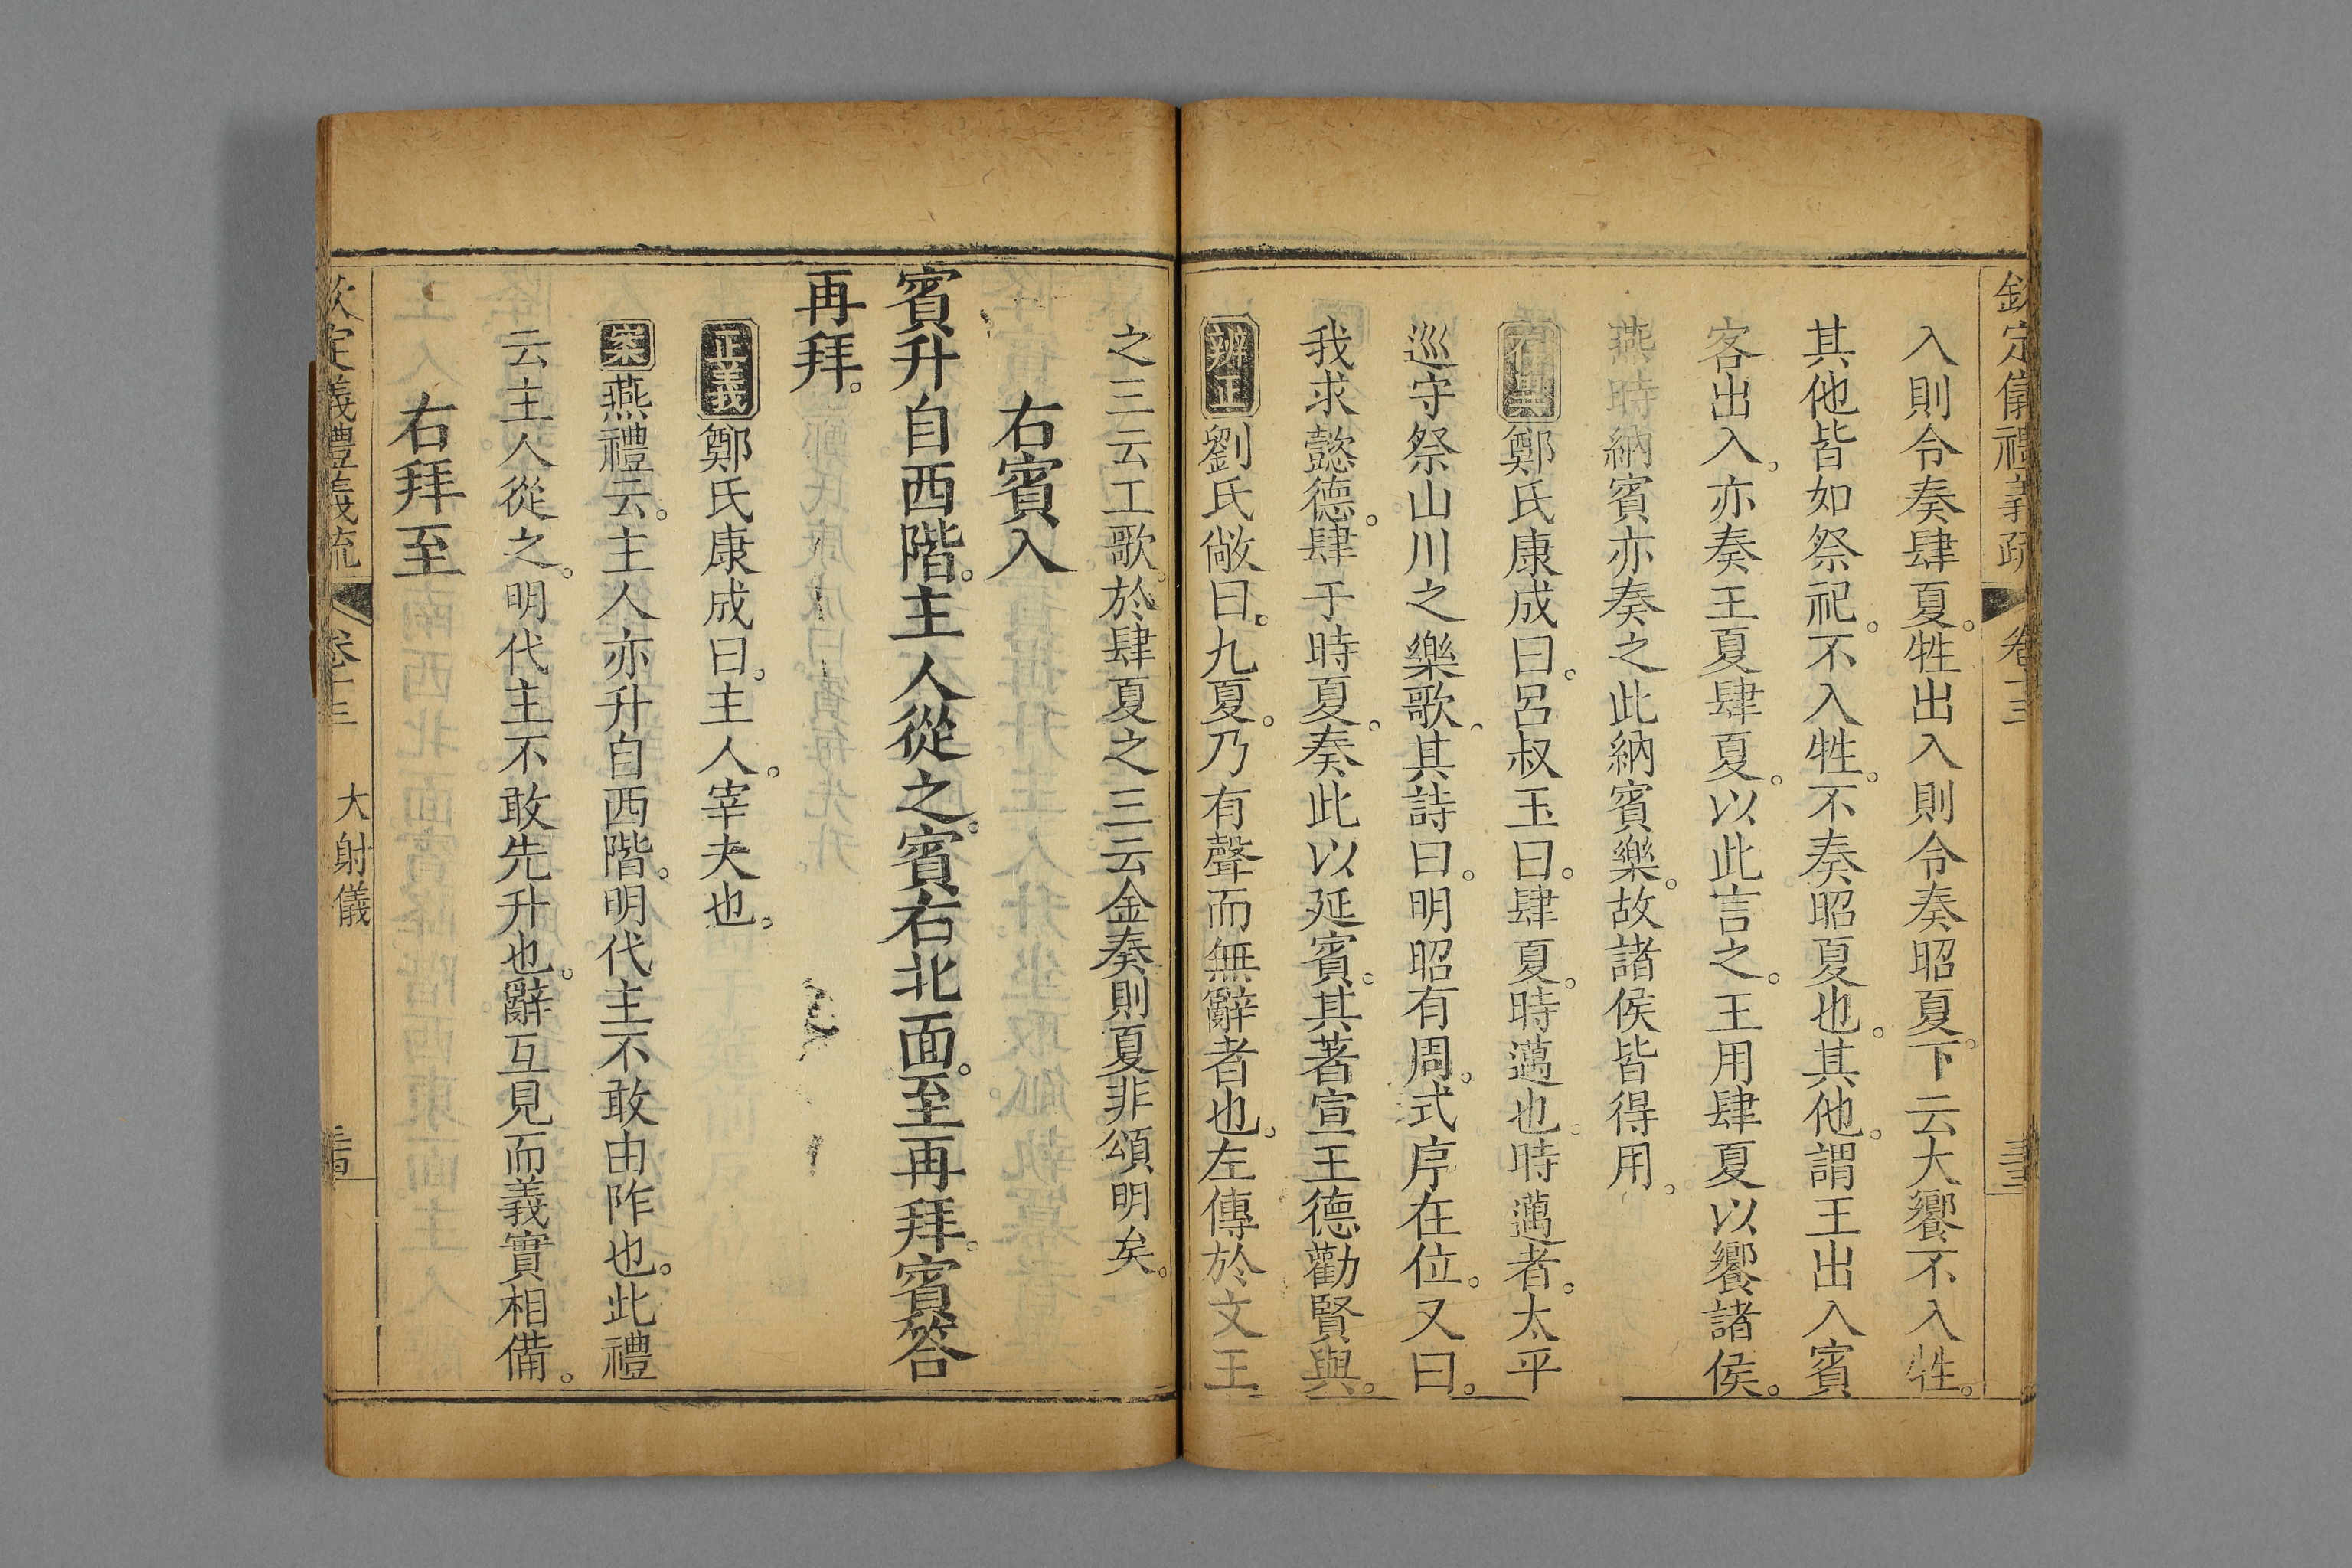 欽定儀禮義疏 卷十三 三十三
入則令奏肆夏。牲出入則令奏昭夏。下云大饗不入牲。
其他皆如祭祀。不入牲。不奏昭夏也。其他。謂王出入賓
客出入。亦奏王夏肆夏。以此言之。王用肆夏以饗諸侯。
燕時納賓亦奏之此納賓樂。故諸侯皆得用。
鄭氏康成曰。呂叔玉曰。肆夏。時邁也。時邁者。太平
巡守祭山川之樂歌。其詩曰。明昭有周。式序在位。又曰。
我求懿德。肆于時夏。奏此以延賓。其著宣王德勸賢與。
辨正劉氏敞曰。九夏。乃有聲而無辭者也。左傳於文王
之三云工歌。於肆夏之三云金奏則夏非頌明矣。
右賓入
賓升自西階。主人從之。賓右北面。至再拜。賓答
再拜。
正義鄭氏康成曰。主人。宰夫也。
案燕禮云。主人亦升自西階。明代主不敢由阼也。此禮
云主人從之。明代主不敢先升也。辭互見而義實相備。
右拜至
欽定儀禮義疏 卷十三 大射儀 三十四